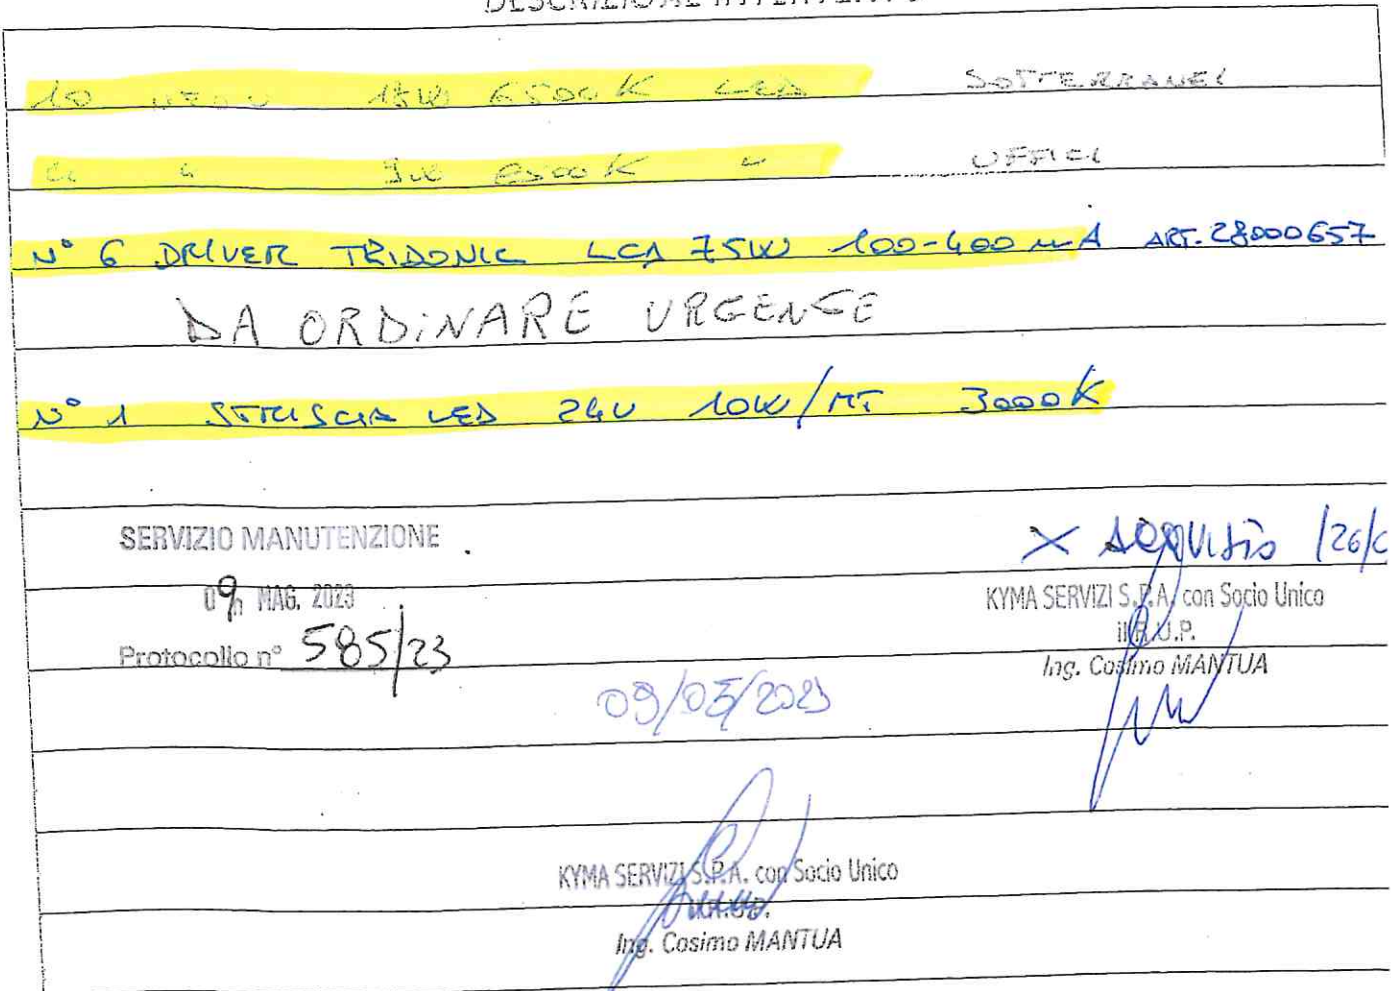 DESCRIZIONE INTERVENTO
10 NEON 18W 6500K LED SOTTERRANEI
6500K UFFICI
N° 6 DRIVER TRIDONIC LCA 75W 100-400 mA ART. 28000657
DA ORDINARE URGENTE
N° 1 STRISCIA LED 24V 10W/MT 3000K
SERVIZIO MANUTENZIONE
09 MAG. 2023
Protocollo n° 585/23
X ACQUISTO
KYMA SERVIZI S.P.A. con Socio Unico
il R.U.P.
Ing. Cosimo MANTUA
09/05/2023
KYMA SERVIZI S.P.A. con Socio Unico
Ing. Cosimo MANTUA